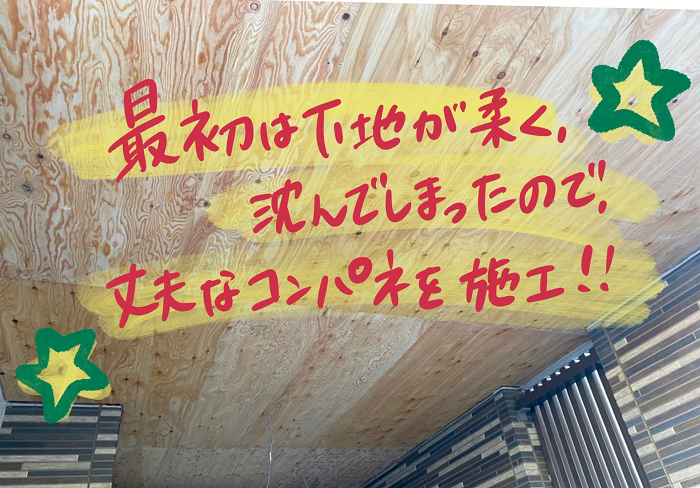 最初は下地が柔く、
沈んでしまったので、
丈夫なコンパネを施工!!